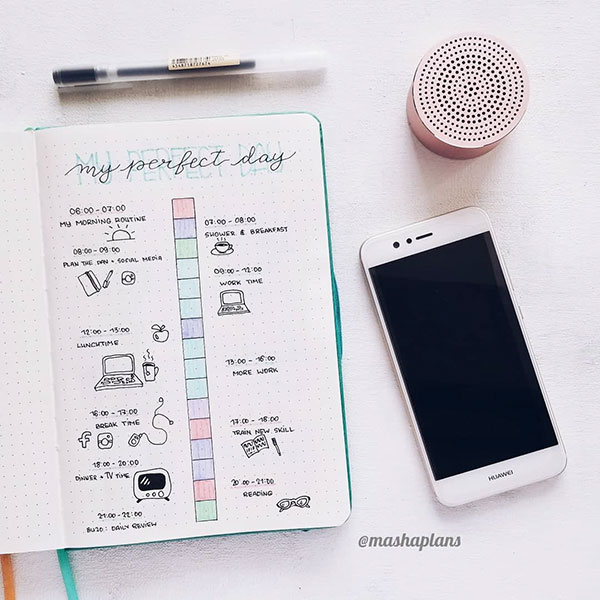 MY PERFECT DAY
my perfect day
06:00 - 07:00
MY MORNING ROUTINE
07:00 - 08:00
SHOWER & BREAKFAST
08:00 - 09:00
PLAN THE DAY + SOCIAL MEDIA
09:00 - 12:00
WORK TIME
12:00 - 13:00
LUNCHTIME
13:00 - 16:00
MORE WORK
16:00 - 17:00
BREAK TIME
17:00 - 18:00
TRAIN NEW SKILL
18:00 - 20:00
DINNER + TV TIME
20:00 - 21:00
READING
21:00 - 22:00
BUJO: DAILY REVIEW
HUAWEI
@mashaplans